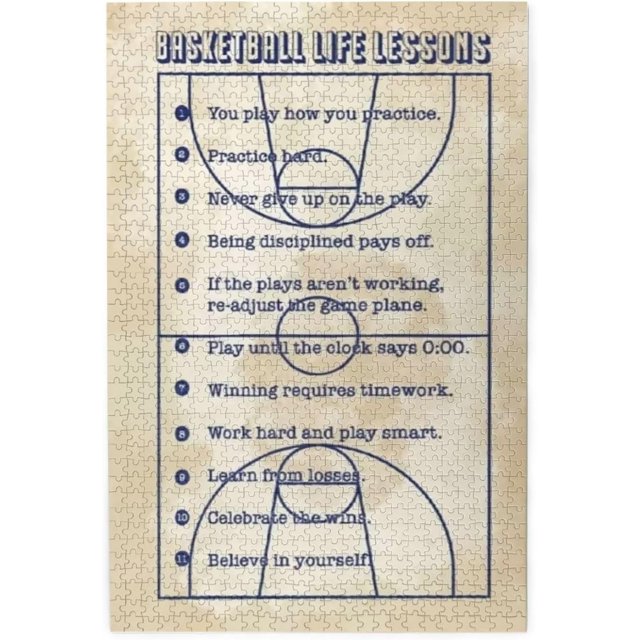 BASKETBALL LIFE LESSONS
1 You play how you practice.
2 Practice hard.
3 Never give up on the play.
4 Being disciplined pays off.
5 If the plays aren't working,
re-adjust the game plane.
6 Play until the clock says 0:00.
7 Winning requires timework.
8 Work hard and play smart.
9 Learn from losses.
10 Celebrate the wins.
11 Believe in yourself.